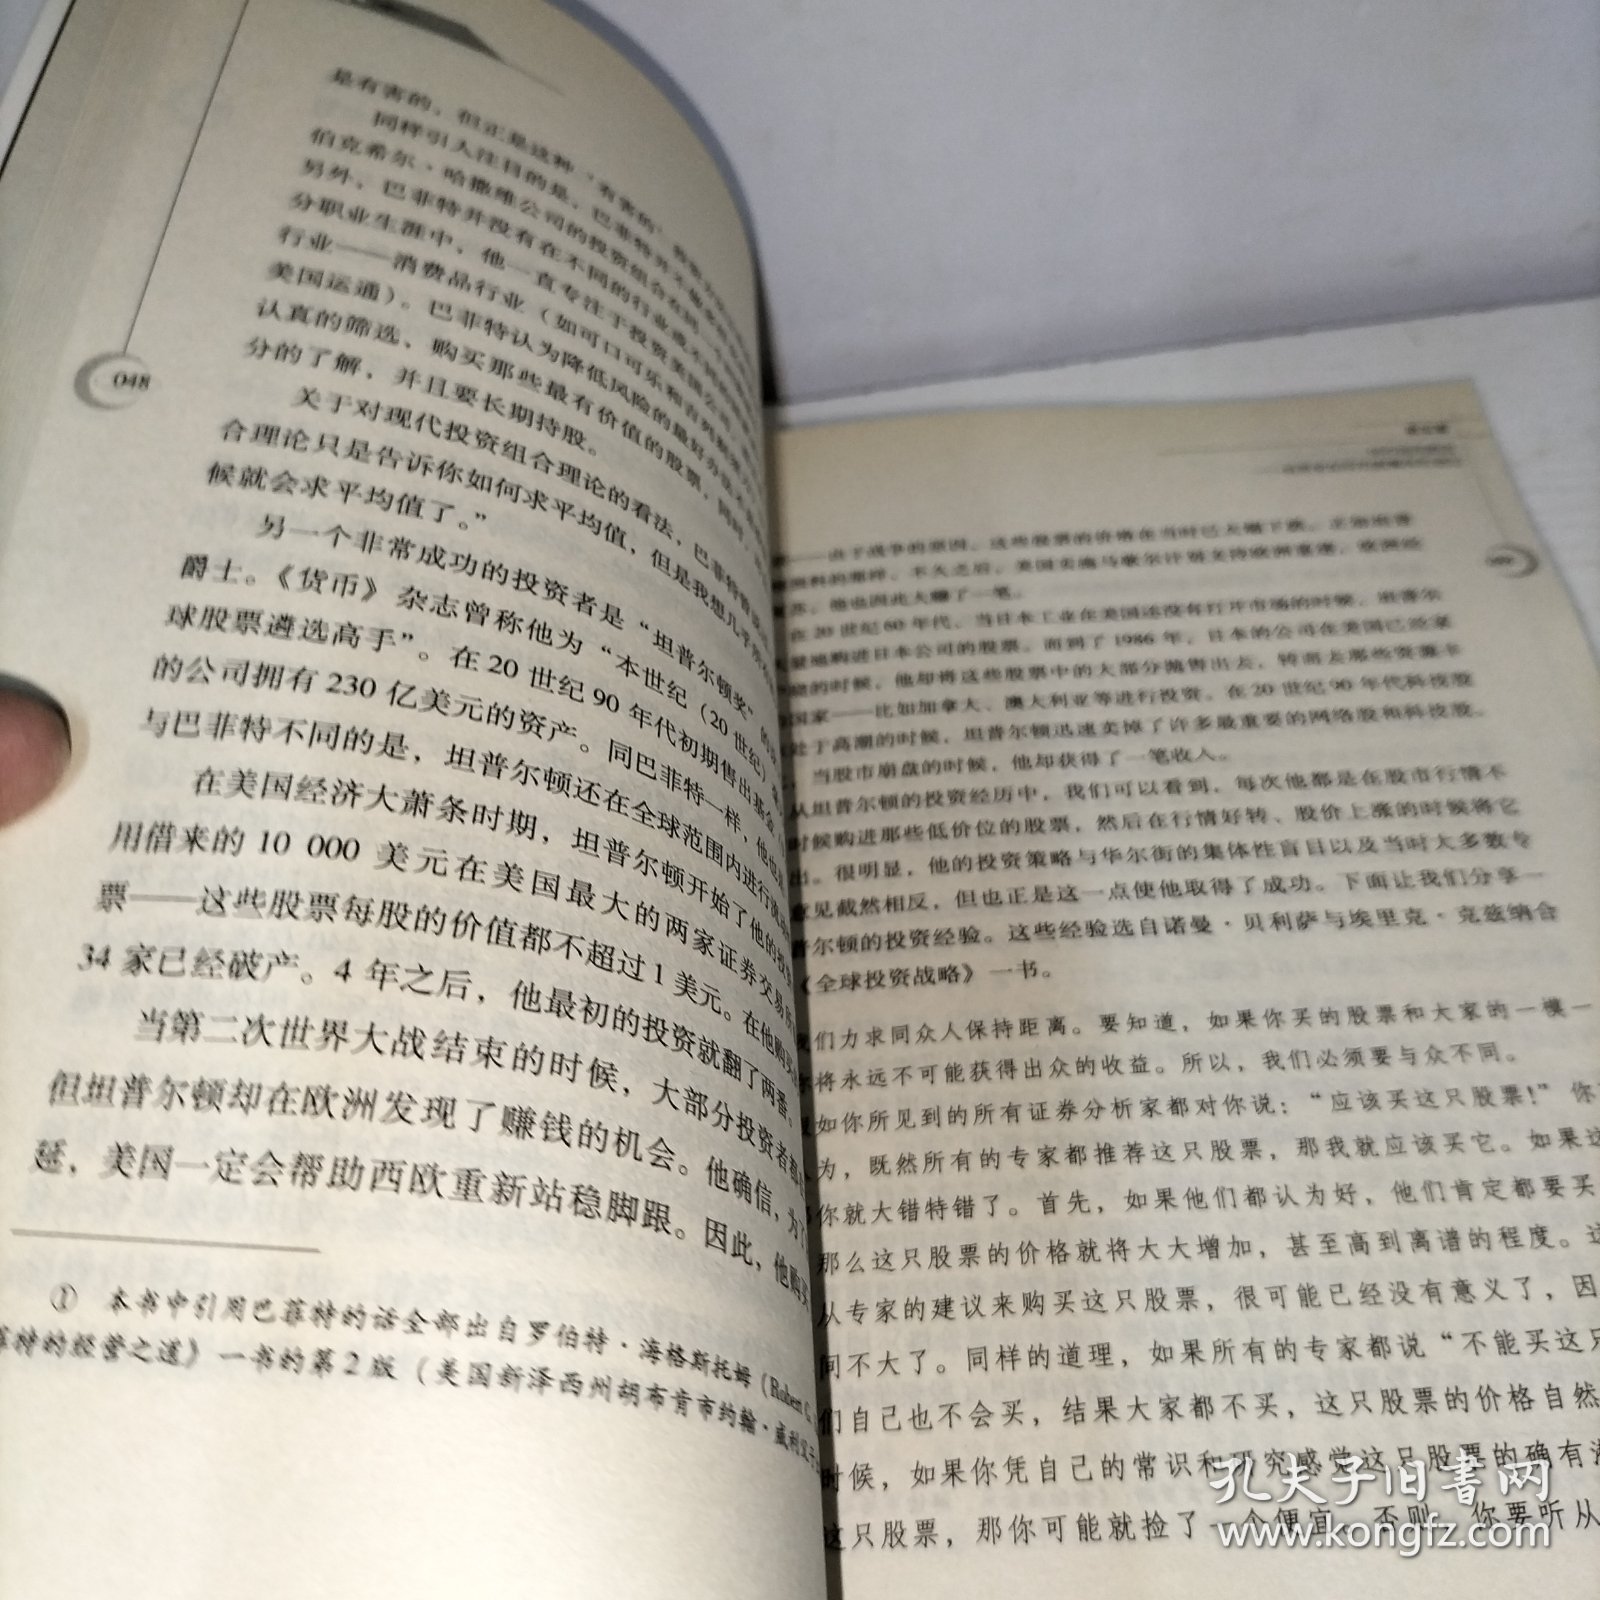 048
是有害的，但正是这种
同样引人注目的是，巴菲特并不
伯克希尔·哈撒维公司的投资组合在同一
另外，巴菲特并没有在不同的行业或不同的
分职业生涯中，他一直专注于投资美国公司
行业——消费品行业（如可口可乐和吉列
美国运通）。巴菲特认为降低风险的最好办法
认真的筛选，购买那些最有价值的股票，同时
分的了解，并且要长期持股。
关于对现代投资组合理论的看法，巴菲特曾
合理论只是告诉你如何求平均值，但是我想几乎所
候就会求平均值了。”
另一个非常成功的投资者是“坦普尔顿奖”的
爵士。《货币》杂志曾称他为“本世纪（20世纪）
球股票遴选高手”。在20世纪90年代初期售出基金
的公司拥有230亿美元的资产。同巴菲特一样，他也
与巴菲特不同的是，坦普尔顿还在全球范围内进行
在美国经济大萧条时期，坦普尔顿开始了他的投资
用借来的10 000美元在美国最大的两家证券交易所
票——这些股票每股的价值都不超过1美元。在他购买
34家已经破产。4年之后，他最初的投资就翻了两番。
当第二次世界大战结束的时候，大部分投资者都
但坦普尔顿却在欧洲发现了赚钱的机会。他确信，为了
延，美国一定会帮助西欧重新站稳脚跟。因此，他购买
① 本书中引用巴菲特的话全部出自罗伯特·海格斯托姆（Robert G.
菲特的经营之道》一书的第2版（美国新泽西州胡布肯市约翰·威利父子
——由于战争的原因，这些股票的价格在当时已大幅下跌。正如坦普
所料的那样，不久之后，美国实施马歇尔计划支持欧洲重建，欧洲经
苏，他也因此大赚了一笔。
在20世纪60年代，当日本工业在美国还没有打开市场的时候，坦普尔
量地购进日本公司的股票。而到了1986年，日本的公司在美国已经家
的时候，他却将这些股票中的大部分抛售出去，转而去那些资源丰
国家——比如加拿大、澳大利亚等进行投资。在20世纪90年代科技股
处于高潮的时候，坦普尔顿迅速卖掉了许多最重要的网络股和科技股。
当股市崩盘的时候，他却获得了一笔收入。
从坦普尔顿的投资经历中，我们可以看到，每次他都是在股市行情不
时候购进那些低价位的股票，然后在行情好转、股价上涨的时候将它
出。很明显，他的投资策略与华尔街的集体性盲目以及当时大多数专
意见截然相反，但也正是这一点使他取得了成功。下面让我们分享一
普尔顿的投资经验。这些经验选自诺曼·贝利萨与埃里克·克兹纳合
《全球投资战略》一书。
我们力求同众人保持距离。要知道，如果你买的股票和大家的一模一
将永远不可能获得出众的收益。所以，我们必须要与众不同。
如你所见到的所有证券分析家都对你说：“应该买这只股票！”你
为，既然所有的专家都推荐这只股票，那我就应该买它。如果这
你就大错特错了。首先，如果他们都认为好，他们肯定都要买
那么这只股票的价格就将大大增加，甚至高到离谱的程度。这
从专家的建议来购买这只股票，很可能已经没有意义了，因
间不大了。同样的道理，如果所有的专家都说“不能买这只
们自己也不会买，结果大家都不买，这只股票的价格自然
时候，如果你凭自己的常识和研究感觉这只股票的确有
这只股票，那你可能就捡了一个便宜。否则，你要听从
孔夫子旧书网
www.kongfz.com